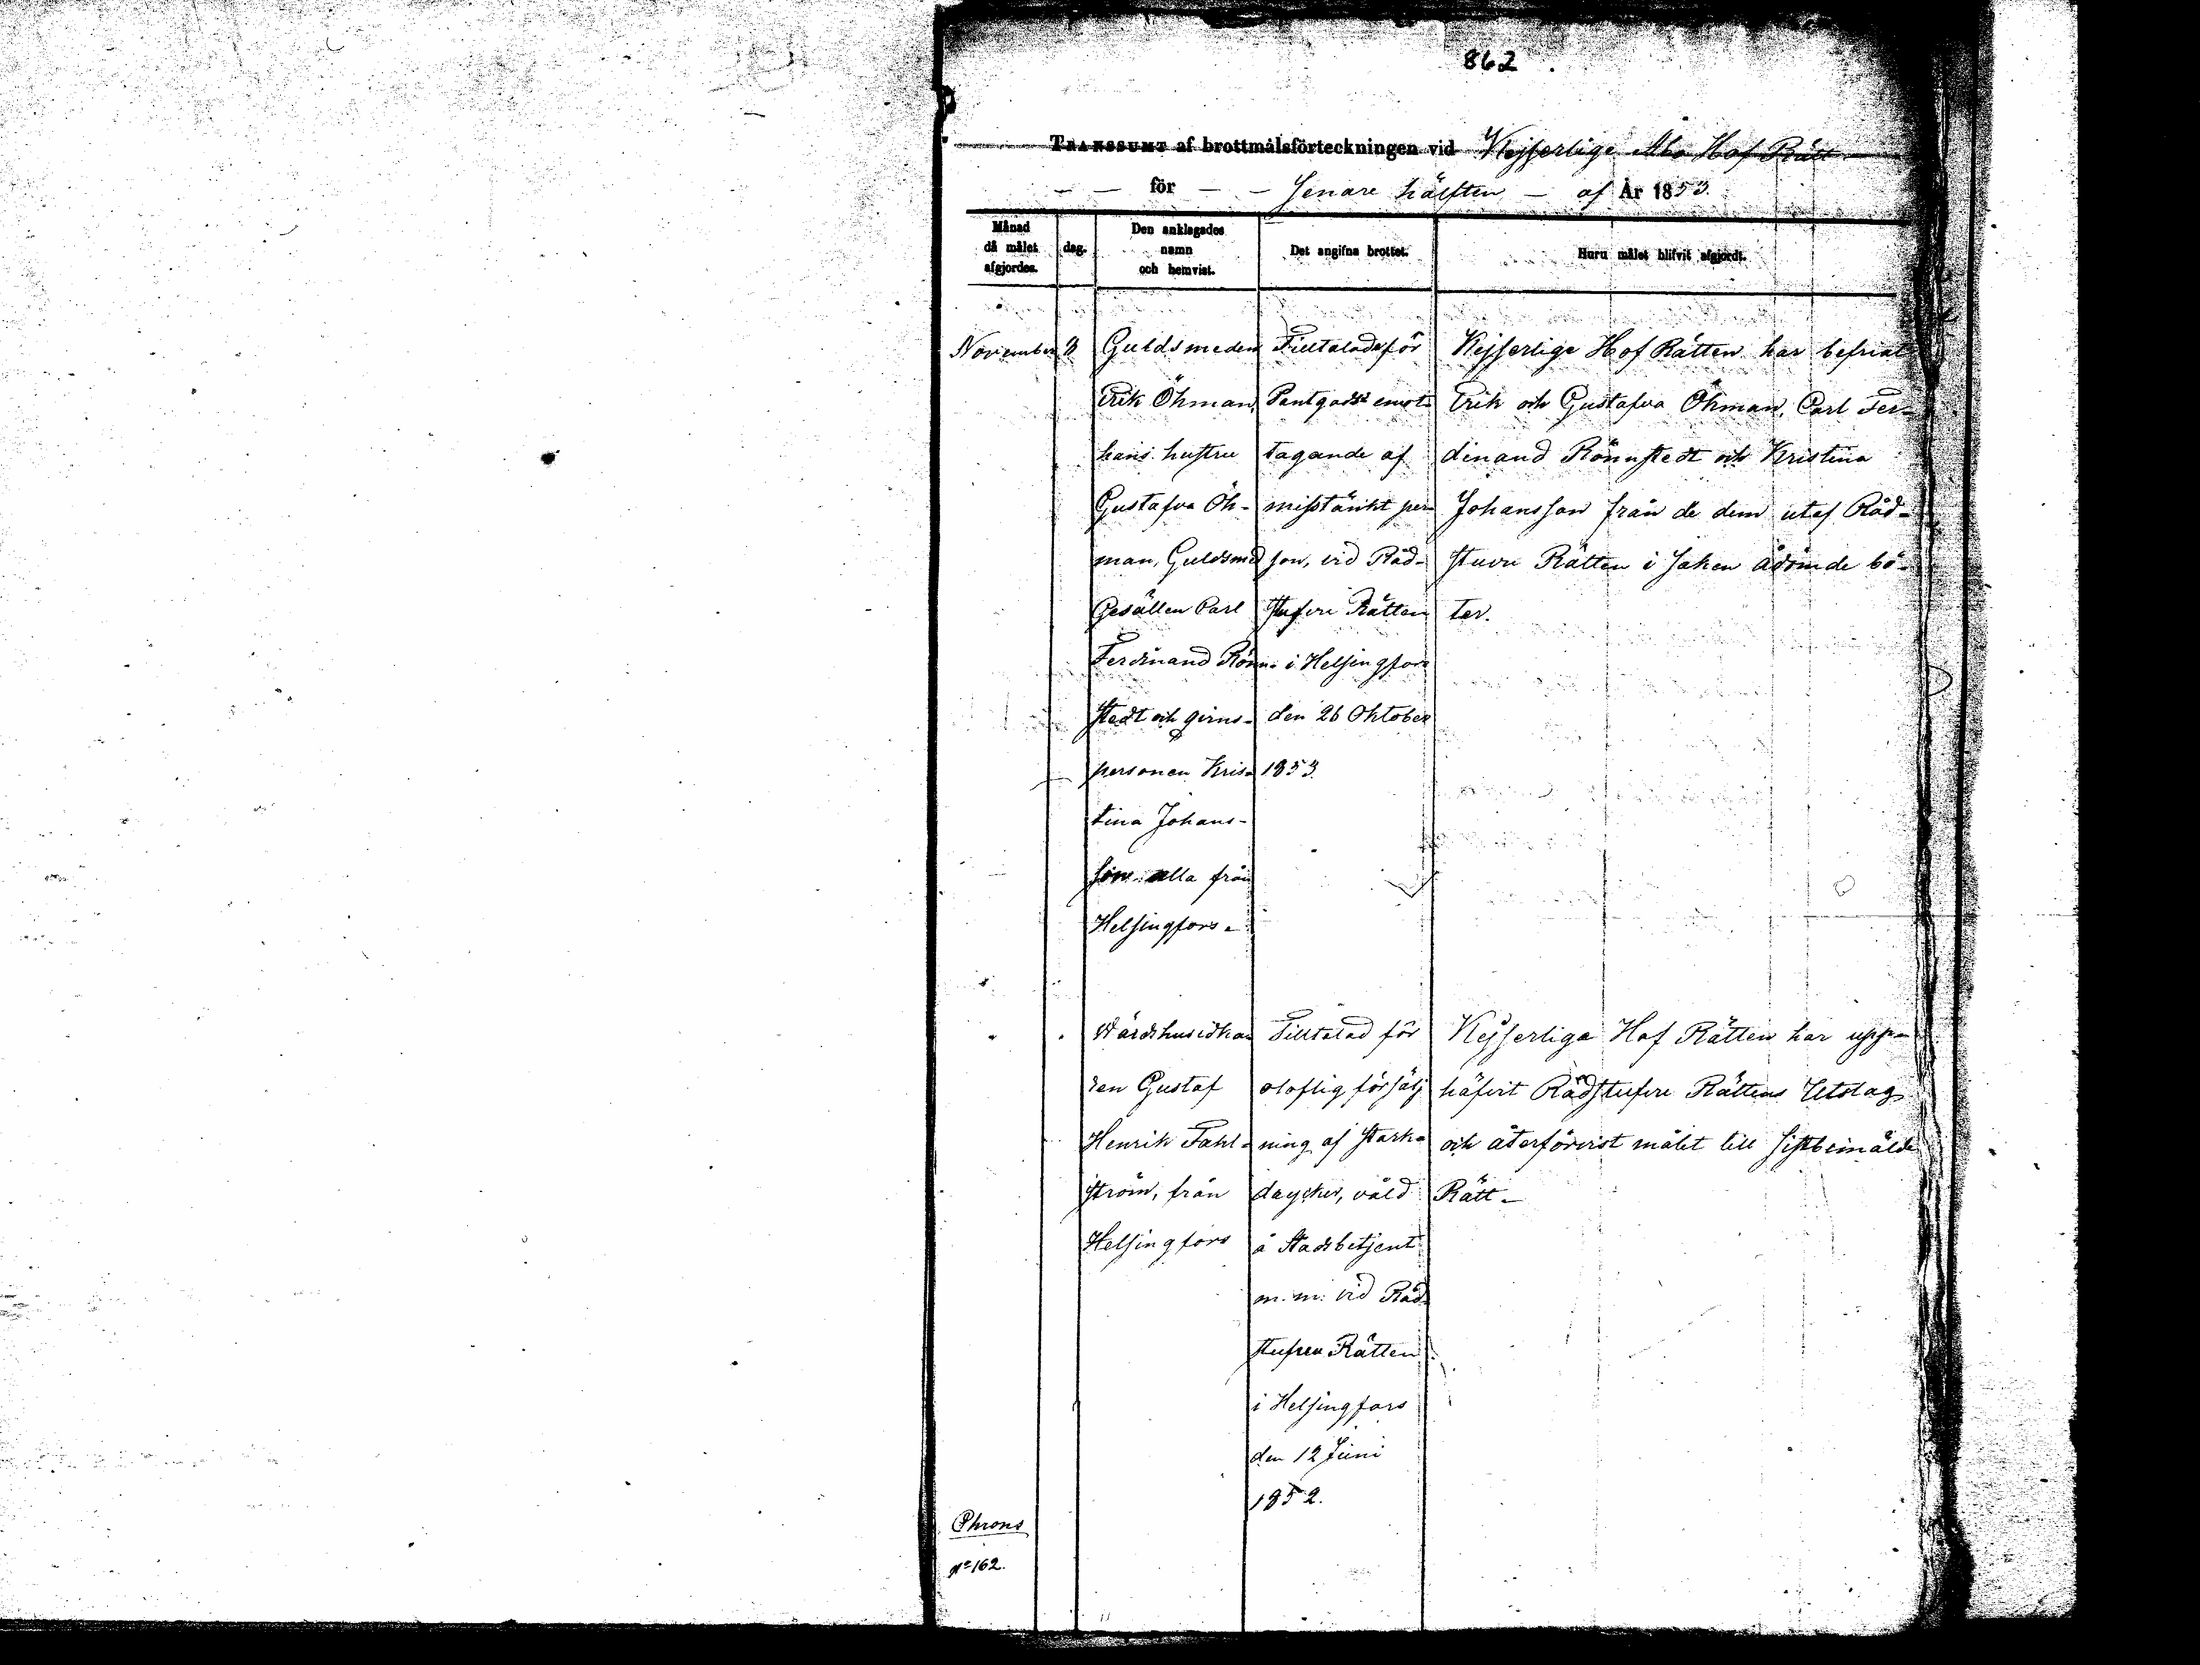 862
TRANSSUMT af brottmålsförteckningen vid Kejserlige Abo Hof Rätt
för Senare hälften af År 1853
Månad
då målet
afgjordes.
dag.
Den anklagades
namn
och hemvist.
Det angifna brottet.
Huru målet blifvit afgjordt.
November 8
Guldsmeden
Erik Öhman,
hans hustru
Gustafva Öh-
man, Guldsmed
Gesällen Carl
Ferdinand Rönn-
stedt och qvins-
personen Kris-
tina Johans-
son alla från
Helsingfors.
Tilltalade för
Pantgods emot-
tagande af
misstänkt per-
son, vid Råd-
stufvu Rätten
i Helsingfors
den 26 Oktober
1853.
Kejserlige Hof Rätten har befriat
Erik och Gustafva Öhman, Carl Fer-
dinand Rönnstedt och Kristina
Johansson från de dem utaf Råd-
stuvu Rätten i saken ådömde bö-
ter.
Wärdshusidka-
ren Gustaf
Henrik Fahl-
ström, från
Helsingfors
Tilltalad för
olaflig försälj
ning af stark-
drycker, våld
å Stadsbetjent
m. m. vid Råd-
stufvu Rätten
i Helsingfors
den 12 Juni
1852.
Kejserliga Hof Rätten har upp-
häfvit Rådstufvu Rättens Utslag
och återförvist målet till sistbemälde
Rätt.
Phrons
No 162.